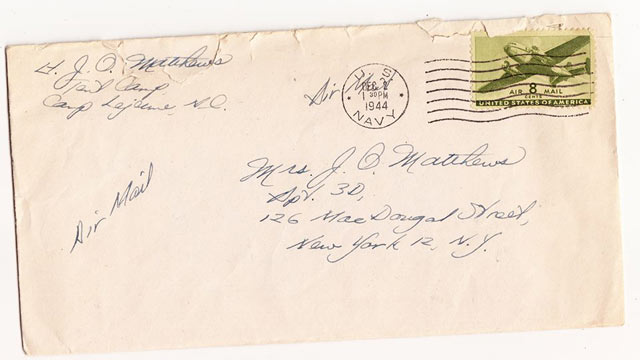 Lt. J. O. Matthews
Tent Camp
Camp Lejeune N.C.
Air Mail
U.S.
DEC 2
1 30PM
1944
NAVY
AIR 8 MAIL
CENTS
UNITED STATES OF AMERICA
Air Mail
Mrs. J. O. Matthews
Apt. 3D,
126 MacDougal Street,
New York 12, N.Y.